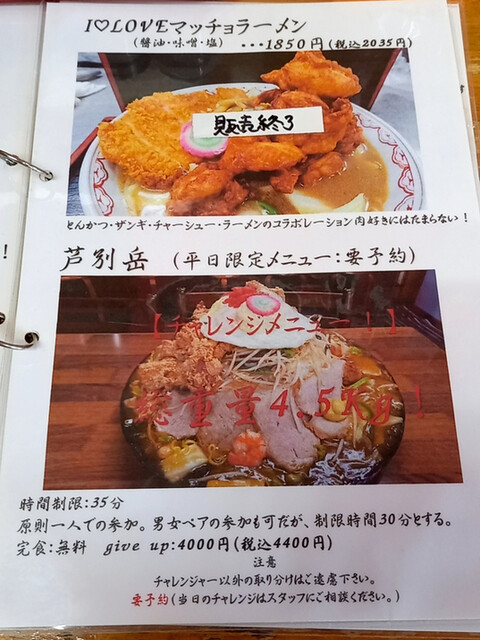 I♡LOVEマッチョラーメン
(醤油・味噌・塩) ・・・1850円(税込2035円)
販売終了
とんかつ・ザンギ・チャーシュー・ラーメンのコラボレーション肉好きにはたまらない！
芦別岳 (平日限定メニュー：要予約)
【チャレンジメニュー！】
総重量4.5Kg！
時間制限：35分
原則一人での参加。男女ペアの参加も可だが、制限時間30分とする。
完食：無料 give up：4000円(税込4400円)
注意
チャレンジャー以外の取り分けはご遠慮下さい。
要予約(当日のチャレンジはスタッフにご相談ください。)
！
！